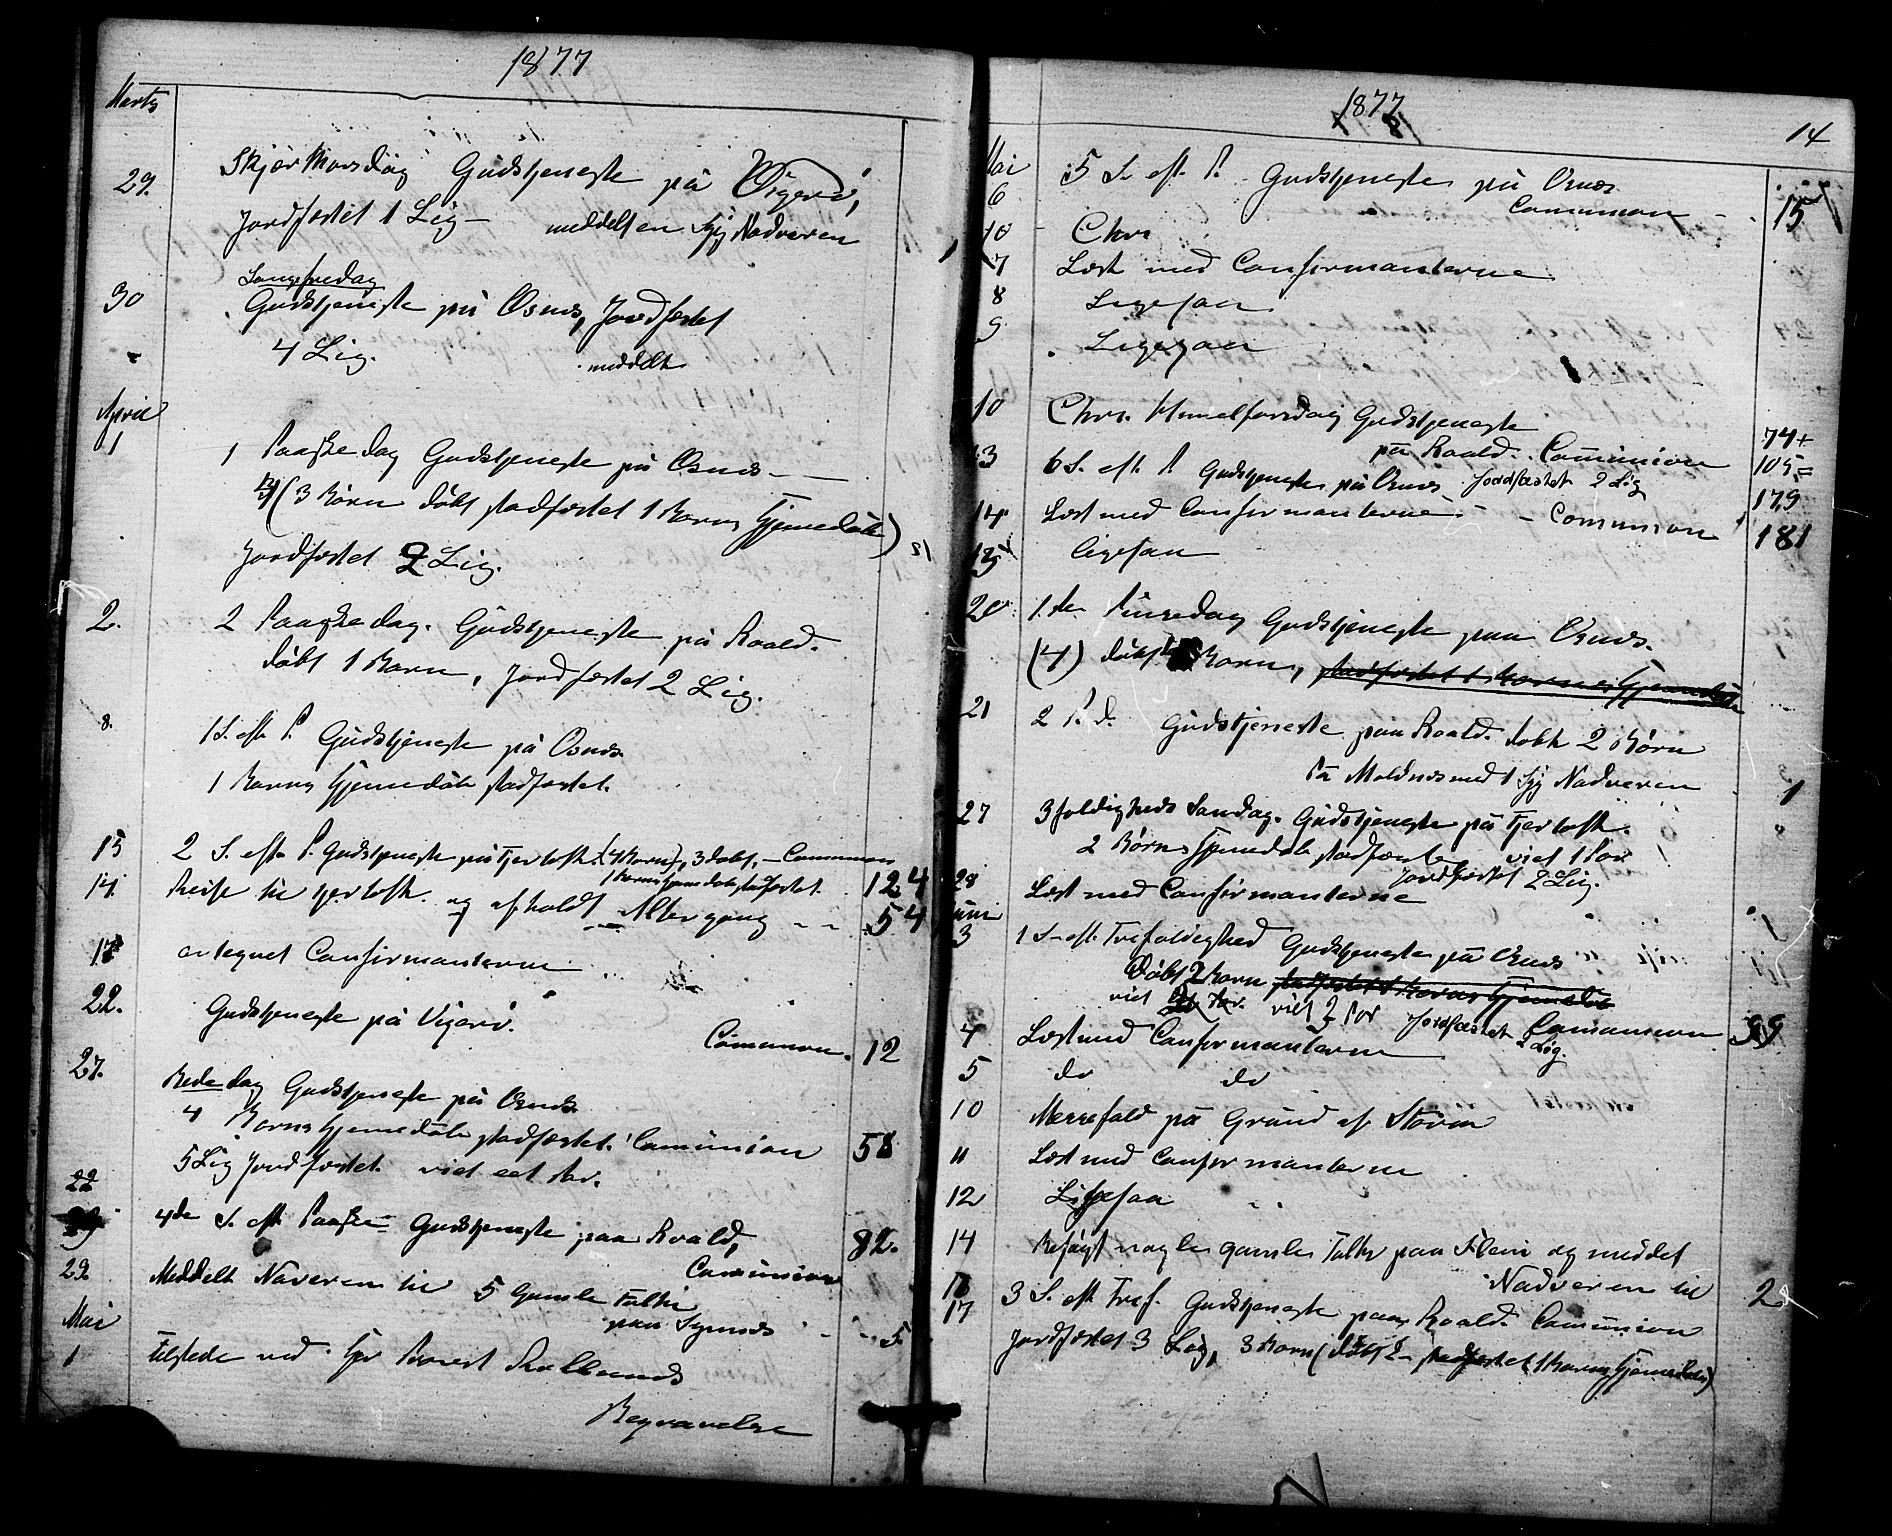 1877
Marts
29. Skjærthorsdag Gudstjeneste på Vigerö,
Jordfæstet 1 Lig — meddelt en Syg Nadveren 1
Langfredag
30 Gudstjeneste på Osnæs, Jordfæstet
4 Lig. meddelt
April
1 1 Paaskedag Gudstjeneste på Osnæs —
(3 Børn döbt stadfæstet 1 Barns Hjemedåb)
Jordfæstet 2 Lig.
2. 2 Paaskedag. Gudstjeneste på Roald.
döbt 1 Barn, Jordfæstet 2 Lig.
8. 1 S. eft P. Gudstjeneste på Osnæs.
1 Barns Hjemedåb stadfæstet.
15 2 S. eft P. Gudstjeneste på Fjertoft. (4 Barn), 3 döbt, — Communion
1 Barns Hjemedåb stadfæstet. 124
14. Reise til Fjertoft. og afholdt Altergang - - 54
17 antegnet Confirmanterne
22. Gudstjeneste på Vigerö.
Comunion. 12
27. Bededag Gudstjeneste på Osnæs.
4 Barns Hjemedåb stadfæstet. Comunion 58
5 Lig Jordfæstet viet eet Par.
22 4de S. eft Paaske Gudstjeneste paa Roald, 82.
Comunion
29. Meddelt Naveren til 5 Gamle Folk
paa Synnes - 5
Mai
1 tilstede ved Begravelse
1877
14
Mai
6 5 S. eft. P. Gudstjeneste på Osnæs
Comunion - 15
10 Chr
7 Læst med Confirmanterne
8 Ligesaa
9 Ligesaa
10 Chr. Himelfarsdag Gudstjeneste
på Roald. Comunion 74+
13 6 S. eft. P Gudstjeneste på Osnæs Jordfæstet 2 Lig 105=
179
14 Læst med Confirmanterne - - Comunion 181
15 ligesaa
20 1.te Pinsedag Gudstjeneste paa Osnæs.
(4) döbt Barn, stadfæstet 1 Barns Hjemedåb
21 2 P. d. Gudstjeneste paa Roald. döbt 2 Börn
På Moldnæs med 1 Syg Nadveren 1
27 3foldigheds Sondag. Gudstjeneste på Fjertoft.
2 Börns Hjemedåb stadfæstet viet 1 Par
Jordfæstet 2 Lig.
28 Læst med Confirmanterne
Juni
3 1 S. eft. Trefoldighed Gudstjeneste på Osnæs
Döbt 2 Barn stadfæstet 1 Barns Hjemedåb
viet Par. viet 2 Par Jordfæstet 2 Lig. Comunion 99
4 Læst med Confirmanterne
5 do do
10 Messefald på Grund af Storm
11 Læst med Confirmanterne
12 Ligesaa
14 Besögt nogle gamle Folk paa Flem og meddet
16 Nadveren til 2
17 3 S. eft Tref. Gudstjeneste paa Roald. Comunion
Jordfæstet 3 Lig, 3 Barn (döbt 2 — stadfæstet 1 Barns Hjemedåb)